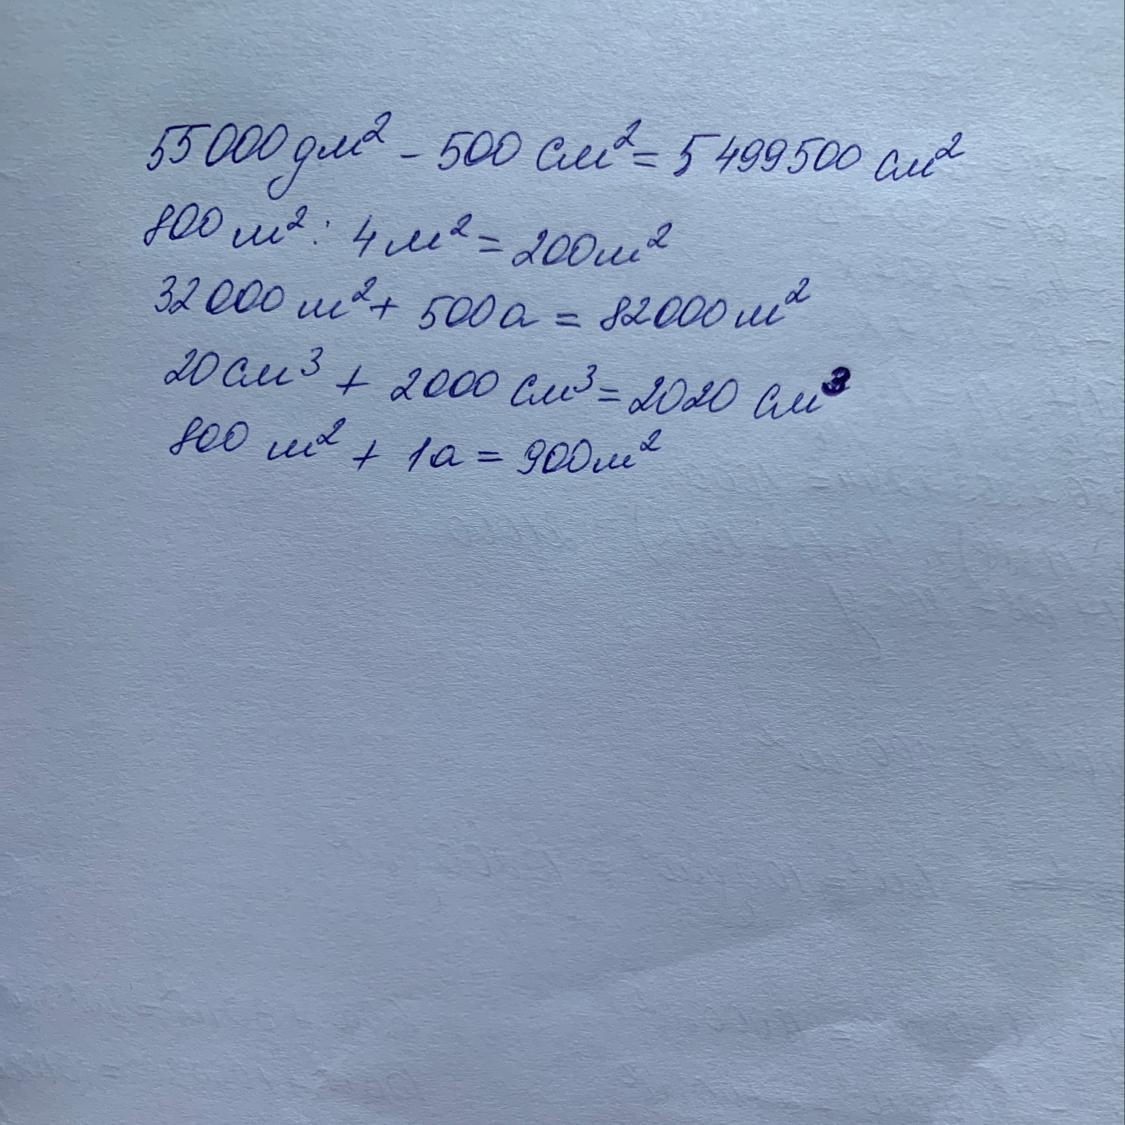 55000 дм² - 500 см² = 5499500 см²
800 м² : 4 м² = 200 м²
32000 м² + 500 а = 82000 м²
20 см³ + 2000 см³ = 2020 см³
800 м² + 1 а = 900 м²